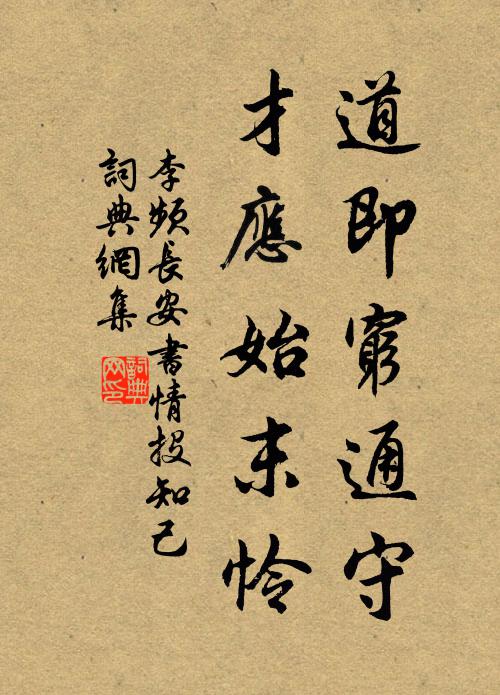 道即窮通守
才應始末怜
李頻長安書情投知己
詞典網集
詞典
网印